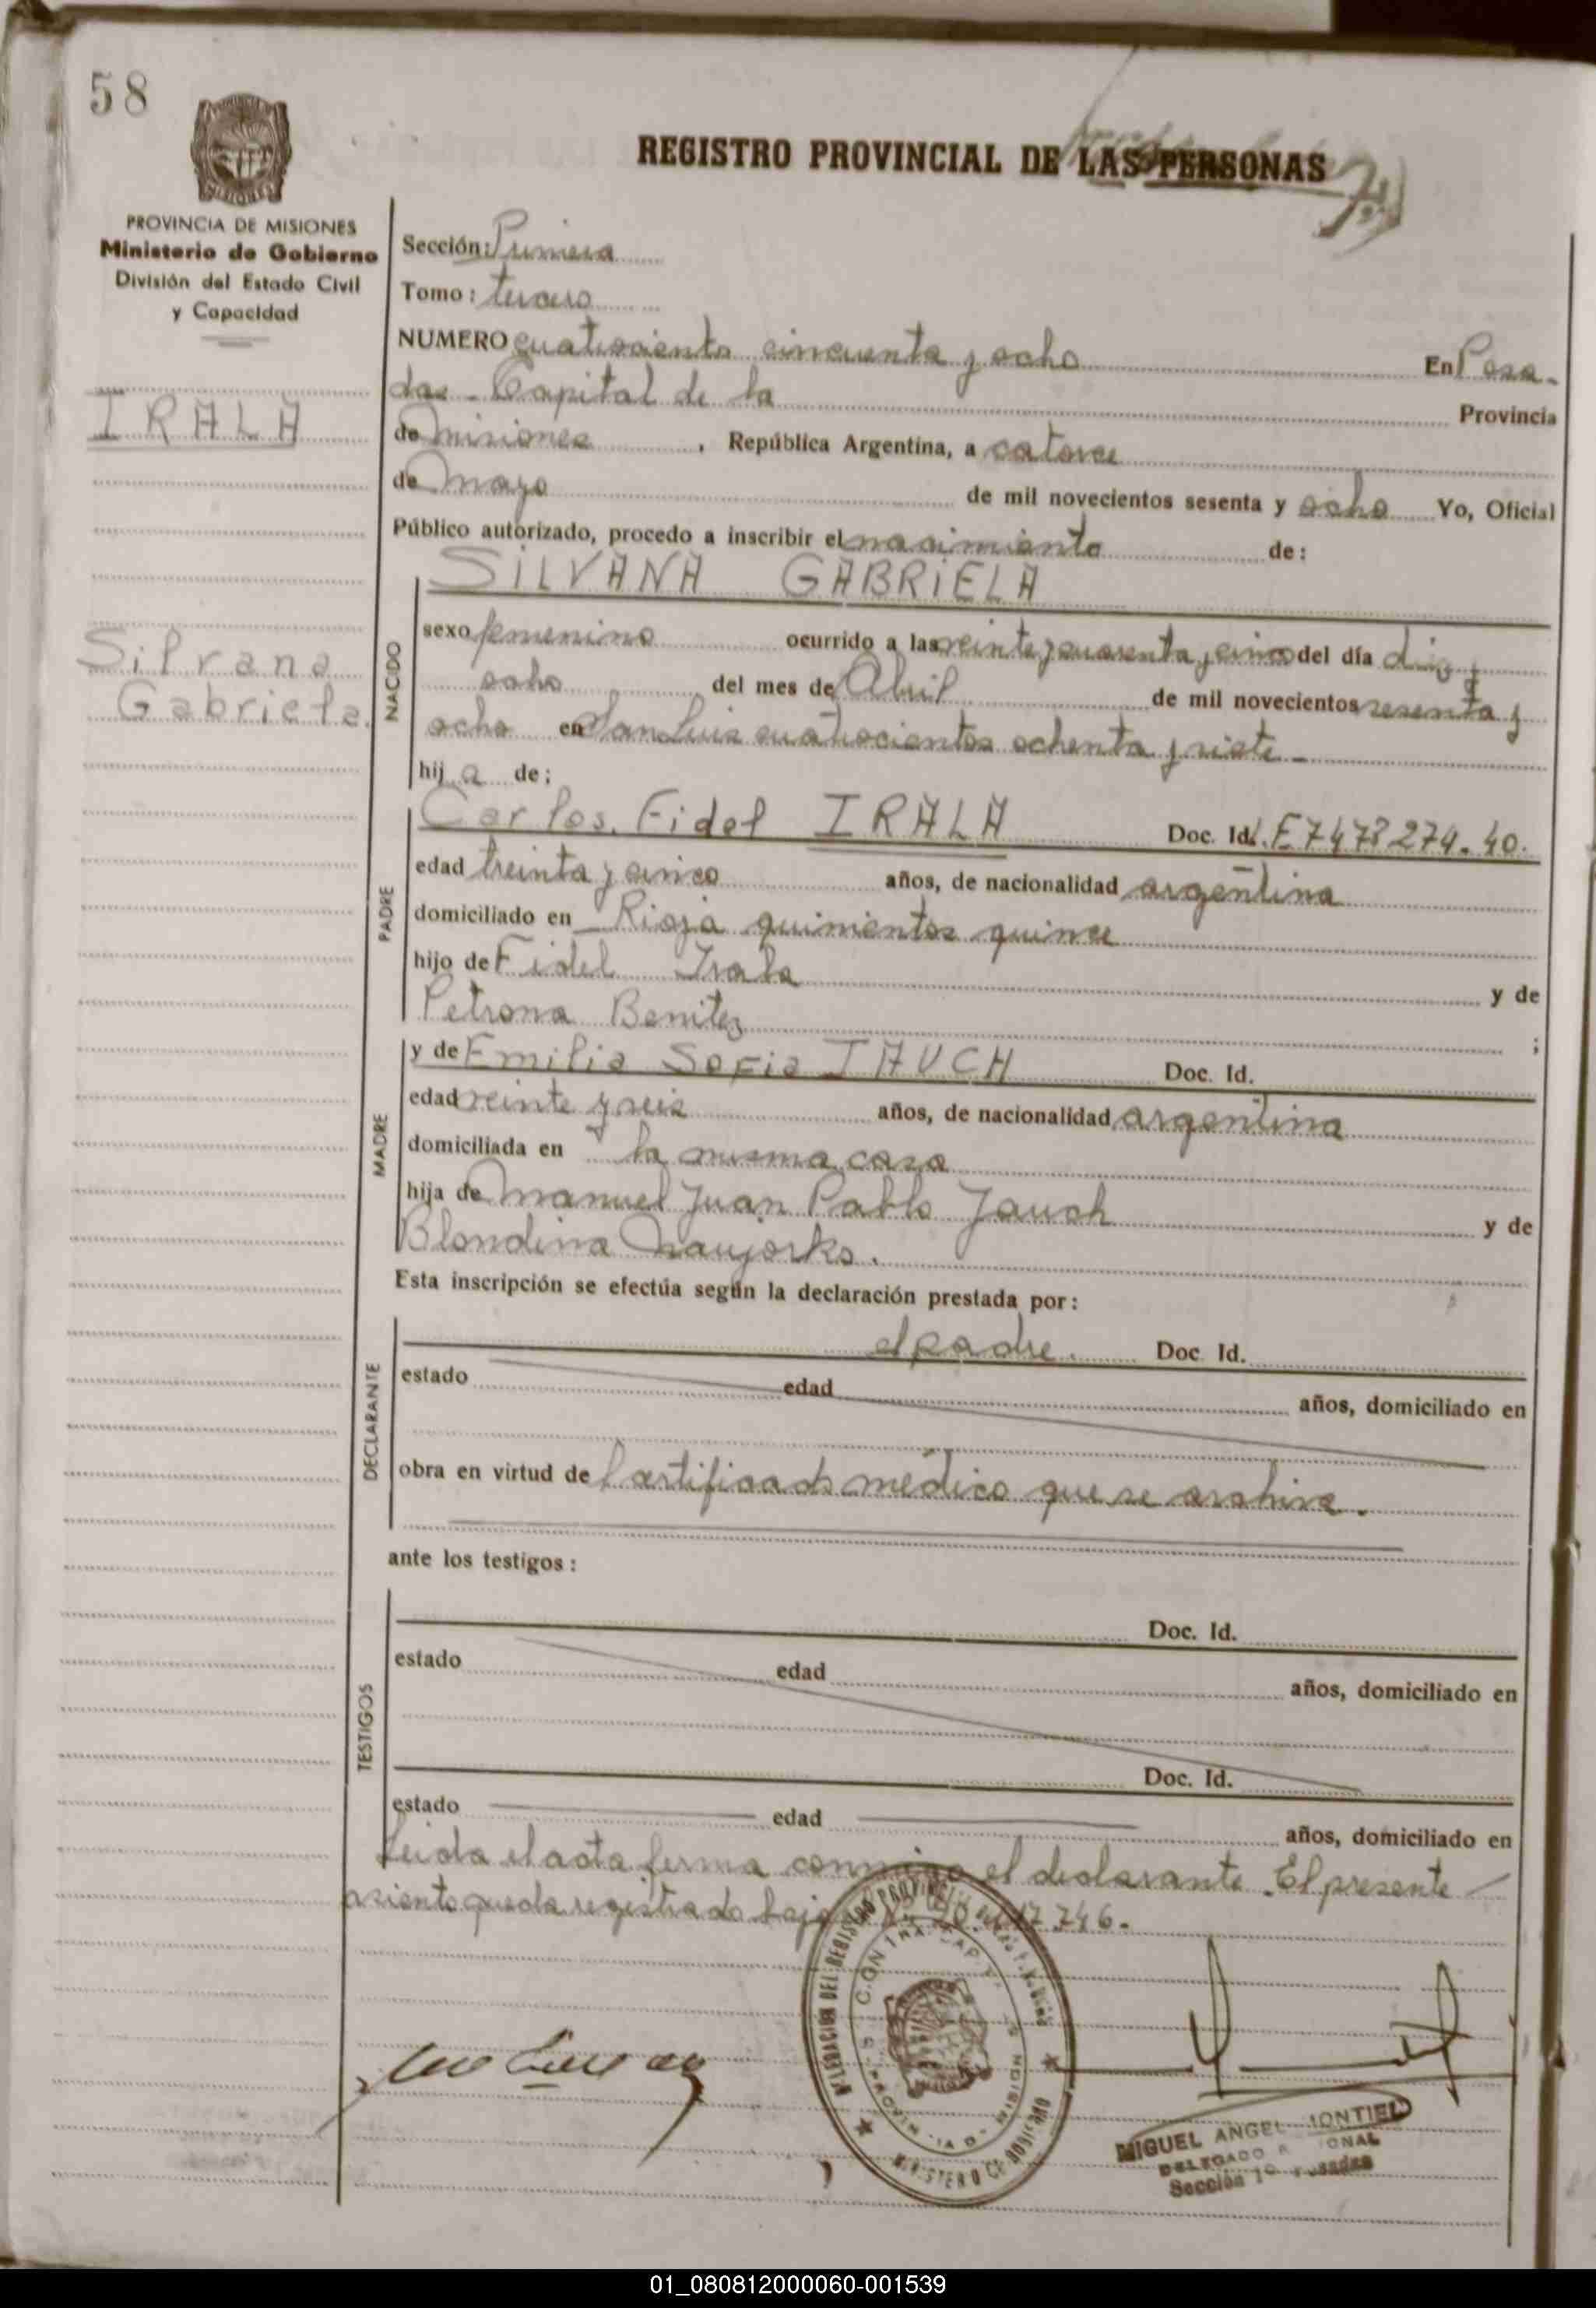 58
REGISTRO PROVINCIAL DE LAS PERSONAS
PROVINCIA DE MISIONES
Ministerio de Gobierno
División del Estado Civil
y Capacidad
IRALA
Silvana
Gabriela.
Sección: Primera
Tomo: tercero
NUMERO cuatrocientos cincuenta y ocho En Posa-
das - Capital de la Provincia
de Misiones, República Argentina, a catorce
de Mayo de mil novecientos sesenta y ocho Yo, Oficial
Público autorizado, procedo a inscribir el nacimiento de:
NACIDO
SILVANA GABRIELA
sexo femenino ocurrido a las veinte y cuarenta y cinco del día diez y
ocho del mes de Abril de mil novecientos sesenta y
ocho en San Luis cuatrocientos ochenta y siete -
hij a de:
PADRE
Carlos Fidel IRALA Doc. Id. L.E 7478274. 40.
edad treinta y cinco años, de nacionalidad argentina
domiciliado en Rioja quinientos quince
hijo de Fidel Irala y de
Petrona Benitez ;
MADRE
y de Emilia Sofia JAUCH Doc. Id.
edad veinte y seis años, de nacionalidad argentina
domiciliada en la misma casa
hija de Manuel Juan Pablo Jauch y de
Blondina Naujorks.
Esta inscripción se efectúa según la declaración prestada por:
DECLARANTE
el padre. Doc. Id.
estado edad años, domiciliado en
obra en virtud de Certificado médico que se archiva.
ante los testigos:
TESTIGOS
Doc. Id.
estado edad años, domiciliado en
Doc. Id.
estado edad años, domiciliado en
Leida el acta firma conmigo el declarante. El presente
asiento queda registrado bajo 746.
MIGUEL ANGEL MONTIEL
DELEGADO
Sección 1º Posadas
01_080812000060-001539